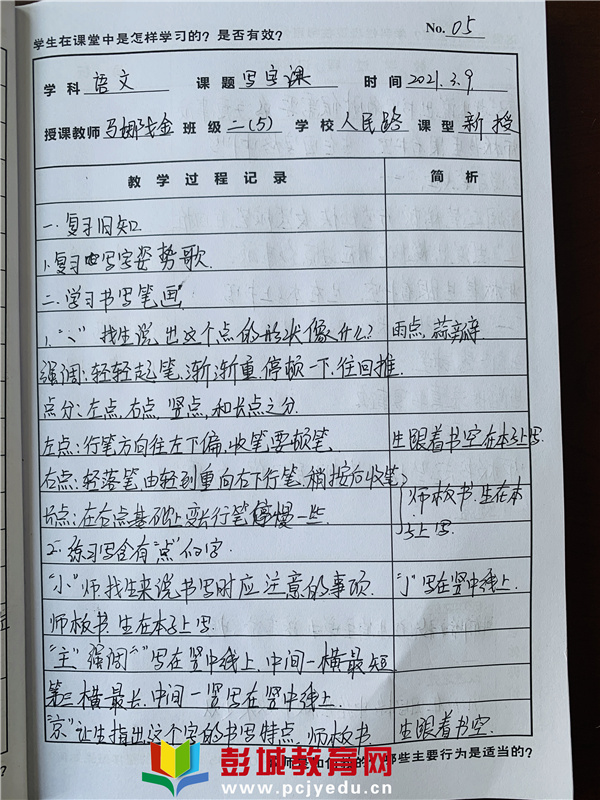 学生在课堂中是怎样学习的？是否有效？ No. 05
学科 语文 课题 写字课 时间 2021.3.9
授课教师 马 班级 二(5) 学校 人民路 课型 新授
教学过程记录 简析
一.复习旧知
1.复习写字姿势歌.
二.学习书写笔画.
1."丶"找生说出这个点的形状像什么? 雨点,蒜瓣
强调:轻轻起笔,渐渐重,停顿一下,往回推.
点分:左点,右点,竖点,和长点之分.
左点:行笔方向往左下偏,收笔要顿笔. 生跟着书空在本子上写.
右点:轻落笔,由轻到重向右下行笔,稍按后收笔 师板书,生在本
长点:在右点基础上变长行笔慢一些. 子上写.
2.练习写含有"点"的字.
"小"师找生来说书写时应注意的事项. "亅"写在竖中线上.
师板书.生在本子上写.
"主"强调"丶"写在竖中线上.中间一横最短
第三横最长.中间一竖写在竖中线上.
"京"让生指出这个字的书写特点,师板书 生跟着书空.
些主要行为是适当的？
彭城教育网
www.pcjyedu.cn